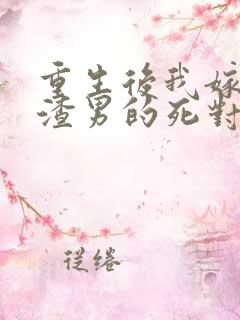 重生後我嫁
渣男的死對
從綣